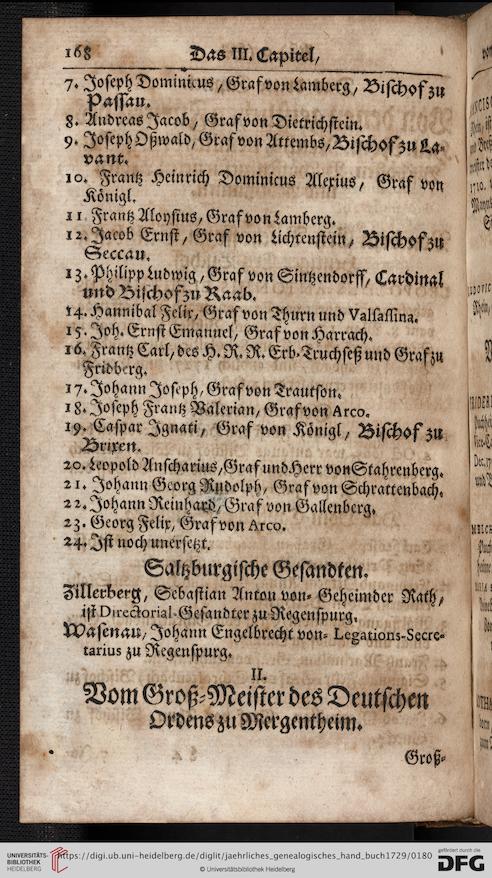 168 Das III. Capitel,
7. Joseph Dominicus, Graf von Lamberg, Bischof zu
Passau.
8. Andreas Jacob, Graf von Dietrichstein.
9. Joseph Oßwald, Graf von Attembs, Bischof zu La-
vant.
10. Frantz Heinrich Dominicus Alexius, Graf von
Königl.
11. Frantz Aloysius, Graf von Lamberg.
12. Jacob Ernst, Graf von Lichtenstein, Bischof zu
Seccau.
13. Philipp Ludwig, Graf von Sintzendorff, Cardinal
und Bischof zu Raab.
14. Hannibal Felix, Graf von Thurn und Valsassina.
15. Joh. Ernst Emanuel, Graf von Harrach.
16. Frantz Carl, des H. R. R. Erb-Truchseß und Graf zu
Fridberg.
17. Johann Joseph, Graf von Trautson.
18. Joseph Frantz Valerian, Graf von Arco.
19. Caspar Ignati, Graf von Königl, Bischof zu
Brixen.
20. Leopold Anscharius, Graf und Herr von Stahrenberg.
21. Johann Georg Rudolph, Graf von Schrattenbach.
22. Johann Reinhard, Graf von Gallenberg.
23. Georg Felix, Graf von Arco.
24. Ist noch unersetzt.
Saltzburgische Gesandten.
Zillerberg, Sebastian Anton von- Geheimder Rath,
ist Directorial-Gesandter zu Regenspurg.
Wasenau, Johann Engelbrecht von- Legations-Secre-
tarius zu Regenspurg.
II.
Vom Groß-Meister des Deutschen
Ordens zu Mergentheim.
Groß-
UNIVERSITÄTS-
BIBLIOTHEK
HEIDELBERG
https://digi.ub.uni-heidelberg.de/diglit/jaehrliches_genealogisches_hand_buch1729/0180
© Universitätsbibliothek Heidelberg
gefördert durch die
DFG